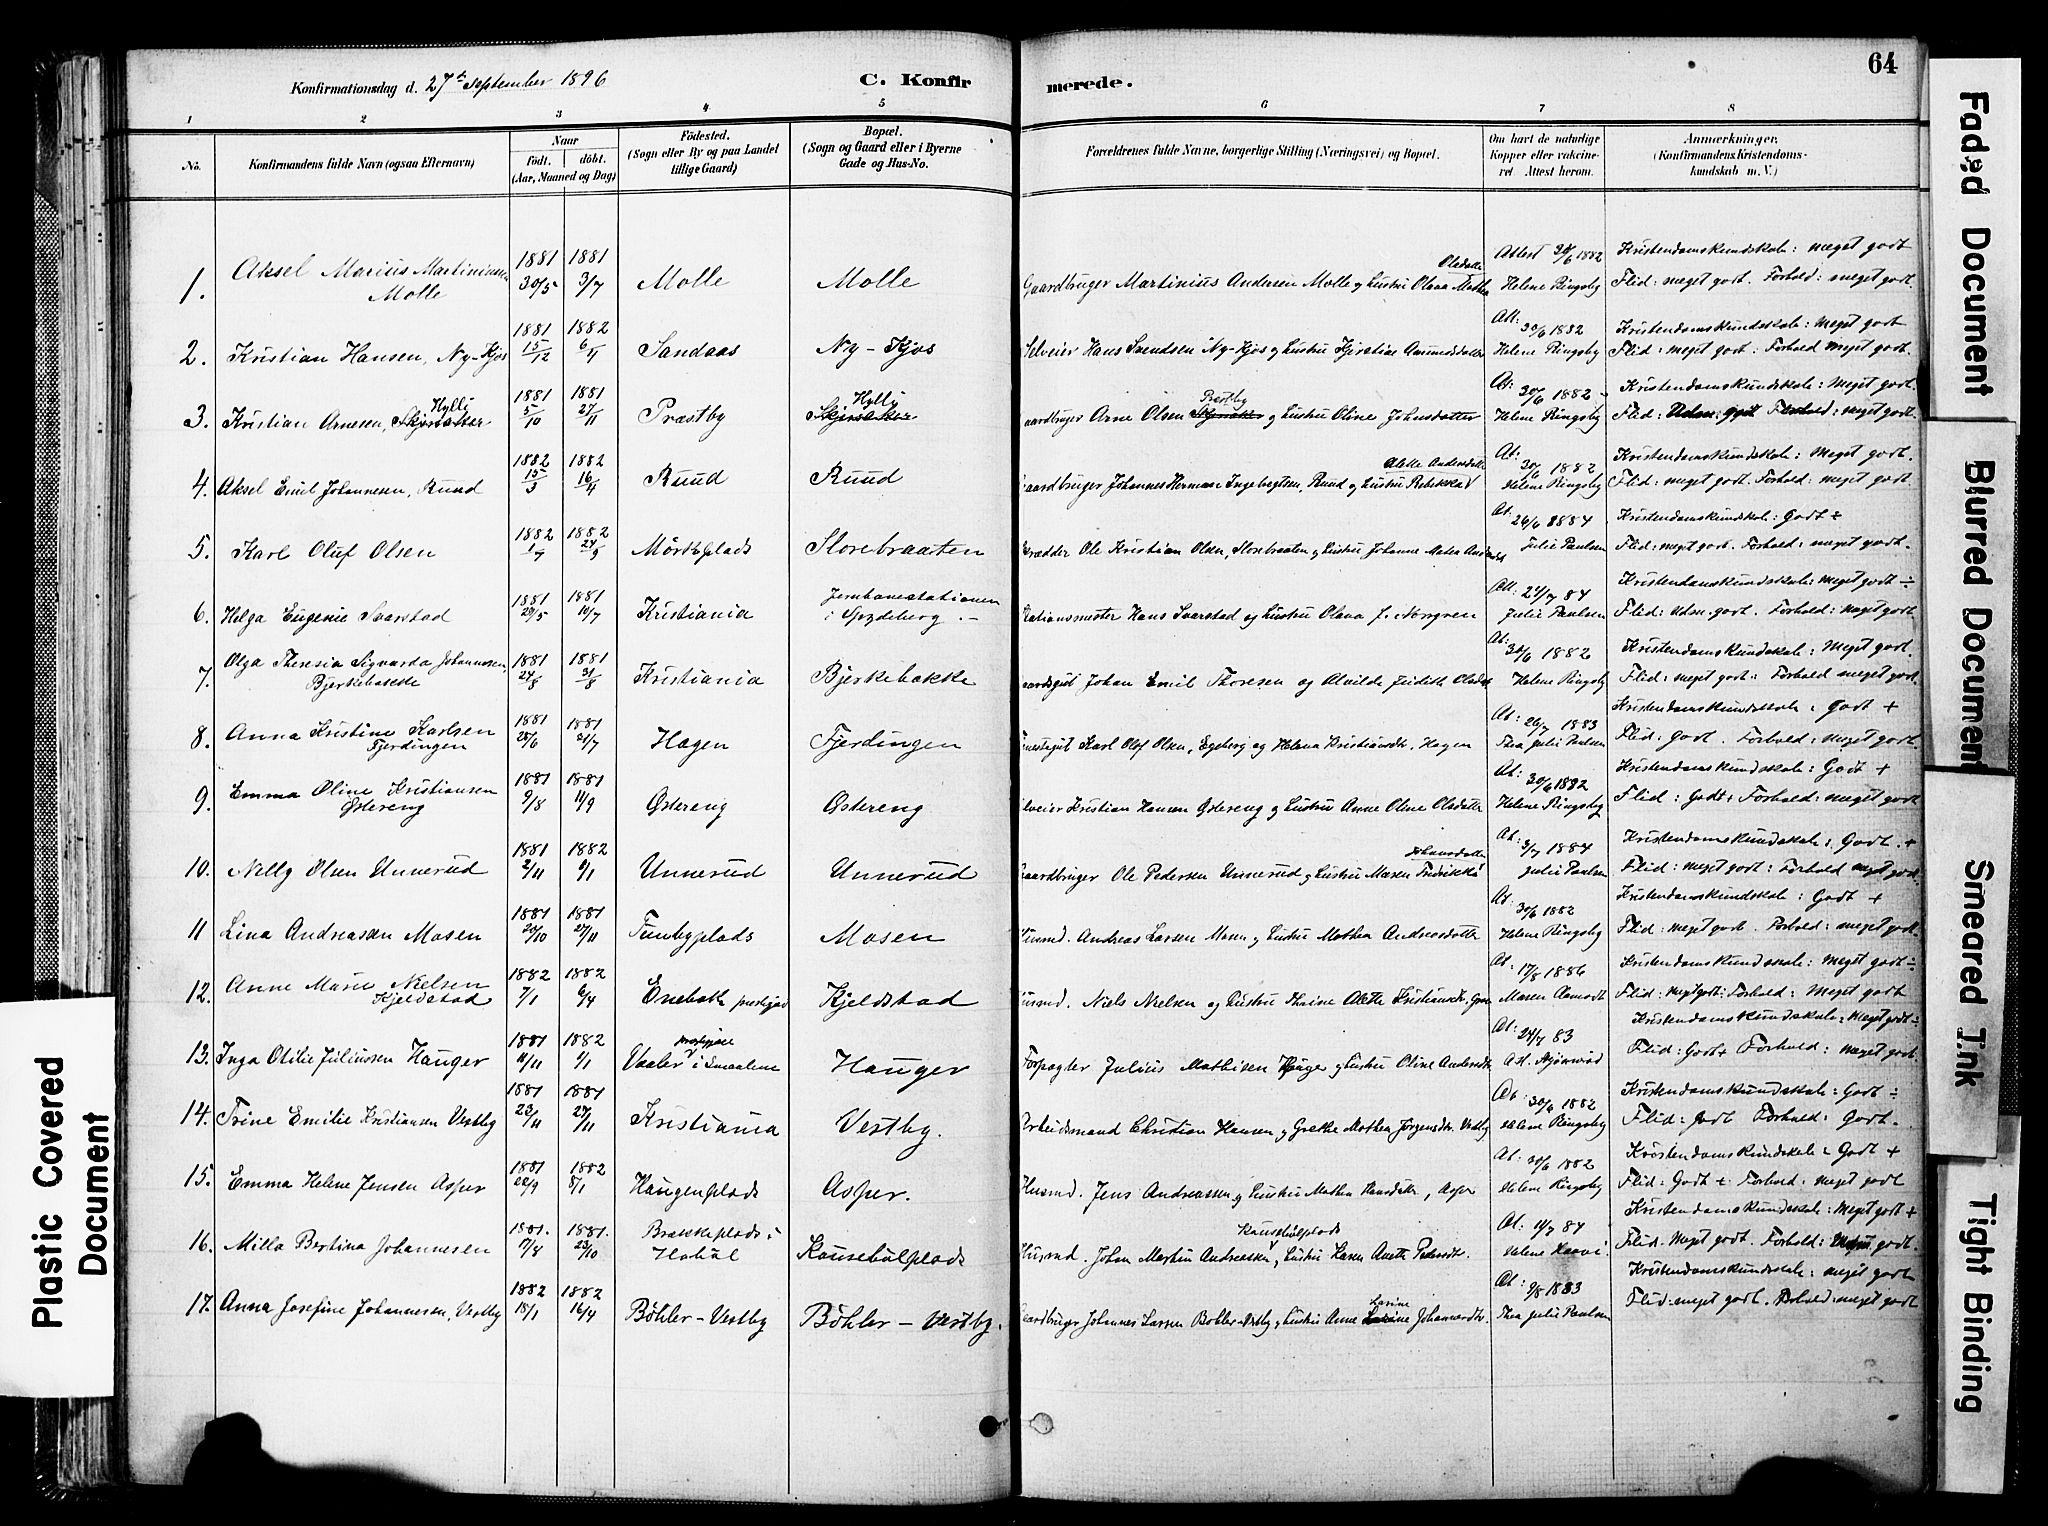 Konfirmationsdag d. 27de september 1896
C. Konfir
merede.
64
1 2 3 4 5 6 7 8
No. Konfirmandens fulde Navn (ogsaa Efternavn)
Naar
født. døbt.
(Aar, Maaned og Dag)
Fødested.
(Sogn eller By og paa Landet
tillige Gaard)
Bopæl.
(Sogn og Gaard eller i Byerne
Gade og Hus-No.
Forældrenes fulde Navne, borgerlige Stilling (Næringsvei) og Bopæl.
Om havt de naturlige
Kopper eller vakcine-
ret Attest herom.
Anmærkninger.
(Konfirmandens Kristendoms-
kundskab m. V.)
1881 1881 Oledatter Attest 30/6 1882 Kristendomskundskab: meget godt
1. Aksel Marius Martiniussen 30/5 3/7 Molle Molle Gaardbruger Martinius Andersen Molle og hustru Olava Mathea Helene Ringsby Flid: meget godt. Forhold: meget godt.
Molle
1881 1882 Att: 30/6 1882 Kristendomskundskab: Meget godt.
2. Kristian Hansen, Ny-Kjos 15/12 6/4 Sandaas Ny-Kjos Selveier Hans Svendsen Ny-Kjos og hustru Kjerstine Amundsdatter Helene Ringsby Flid: meget godt. Forhold meget godt.
Hylli 1881 1881 Hylli Præstby At: 30/6 1882 Kristendomskundskab: Meget godt.
3. Kristian Arnesen, 5/10 27/11 Præstby Gaardbruger Arne Olsen og hustru Oline Johnsdatter Helene Ringsby Flid: Forhold: meget godt.
1882 1882 Alette Andersdatter At: 30/6 1882 Kristendomskundskab: Meget godt.
4. Aksel Emil Johannesen, Ruud 15/3 16/4 Ruud Ruud Gaardbruger Johannes Herman Ingebegtsen, Ruud og hustru Rebekka Helene Ringsby Flid: meget godt. Forhold: meget godt
1882 1882 At: 26/6 8884 Kristendomskundskab: Godt ÷
5. Karl Oluf Olsen 24/9 Mördeplads Storebraaten Ole Kristian Olsen, Storebraaten og hustru Johanne Julie Paulsen Flid: meget godt. Forhold: meget godt.
1881 1881 Jernbanestationen Att: 24/7 84 Kristendomskundskab: meget godt ÷
6. Helga Eugenie Svarstad 29/5 10/7 Kristiania i Spydeberg Stationsmester Hans Svarstad og hustru Olava f. Norgren Julie Paulsen Flid: Udm. godt. Forhold: meget godt
Olga Theresia Sigvarda Johannesen, 1881 1881 At: 30/6 1882 Kristendomskundskab: Meget godt.
7. Bjerkebakke 24/8 31/8 Kristiania Bjerkebakke Gaardsgut Johan Emil Thoresen og Alvilde Judith Helene Ringsby Flid: meget godt. Forhold meget godt.
1881 1881 At: 26/7 1883 Kristendomskundskab: Godt +
8. Anna Kristine Karlsen 25/6 21/7 Hagen Fjerdingen Karl Olef Olsen, Egeberg og Helena Kristiansdtr. Hagen Thea Julie Paulsen Flid: godt. Forhold: meget godt.
Fjerdingen
1881 1881 At: 30/6 1882 Kristendomskundskab: Godt +
9. Emma Oline Kristiansen 9/8 11/9 Østereng Østereng Selveier Kristian Hansen Østereng og hustru Anne Oline Olsdatter Helene Ringsby Flid: Godt + Forhold: meget godt
Østereng
1881 1882 Johansdatter At: 3/7 1884 Kristendomskundskab: Godt. +
10. Nelly Olsen Unnerud 2/11 6/1 Unnerud Unnerud Gaardbruger Ole Pedersen Unnerud og hustru Maren Fredrikka Julie Paulsen Flid: meget godt: Forhold meget godt.
1881 1881 At 30/6 1882 Kristendomskundskab: Godt +
11 Lina Andreasen Mosen 20/10 27/11 Mosen Husmd. Andreas Larsen Mosen og hustru Mathea Andreasdatter Helene Ringsby Flid: meget godt. Forhold: meget godt.
1882 1882 At: 17/8 1886 Kristendomskundskab: Meget godt ÷
12. Anne Marie Nielsen 7/1 6/4 Enebak prestgjd Kjeldstad Husmd. Niels Nielsen og hustru Alette Kristiansdtr. Maren Aamodt Flid: meget godt: Forhold: Meget godt
Kjeldstad
1881 1882 prestgjæld At: 24/7 83 Kristendomskundskab: Meget godt ÷
13. Inga Otilie Juliussen Hauger 11/11 1/1 Vaaler i Smaalene Hauger Forpagter Julius Mathisen Hauger og hustru Oline Andersdtr. Flid: Godt + Forhold: meget godt
1881 1881 At: 30/6 1882 Kristendomskundskab: Godt ÷
14. Trine Emilie Kristiansen Vestby 23/11 27/11 Kristiania Vestby. Arbeidsmand Christian Hansen og Grethe Mathea Jørgensdtr. Vestby Helene Ringsby Flid: Godt Forhold: Godt.
1881 1882 At: 30/6 1882 Kristendomskundskab: Godt +
15. Emma Helene Jensen Asper 22/9 8/1 Haugenplads Asper. Husmd. Jens Andreassen og hustru Mathea Hansdtr., Asper Helene Ringsby Flid: Godt + Forhold: meget godt
1881. 1881. Brækkeplads i Kausebølplads At: 11/7 84 Kristendomskundskab: Meget godt +
16. Milla Bertina Johannesen 7/8 23/10 Hobøl Kausebølplads Husmd. Johan Martin Andreassen, hustru Karen Anette Pedersdtr. Helene Flid: Meget godt. Forhold: Meget godt.
1882 1882 Larine At: 9/8 1883 Kristendomskundskab: meget godt
17. Anna Josefine Johannesen, Vestby 18/1 16/4 Bøhler-Vestby Bøhler-Vestby. Gaardbruger Johannes Larsen Bøhler-Vestby og hustru Anne Johannesdtr. Thea Julie Paulsen Flid: meget godt. Forhold: meget godt
Faded Document
Blurred Document
Smeared Ink
Tight Binding
Plastic Covered
Document